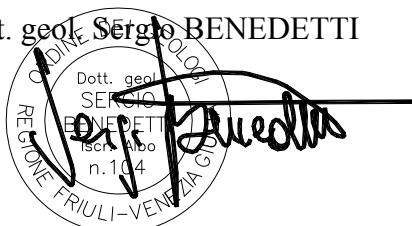 t. geol. Sergio BENEDETTI
ORDINE DEI GEOLOGI
Dott. geol.
SERGIO
BENEDETTI
Iscr. Albo
n.104
REGIONE FRIULI-VENEZIA GIU
Sergio Benedetti